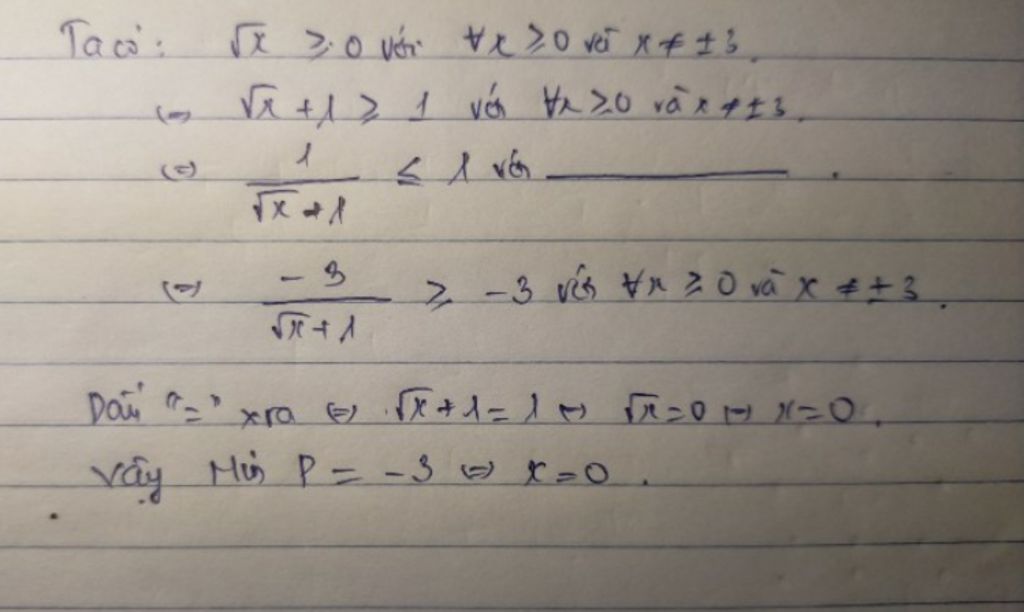 Ta có: √x ≥ 0 với ∀x ≥ 0 và x ≠ ±3.
(=) √x + 1 ≥ 1 với ∀x ≥ 0 và x ≠ ±3.
(=) 1/(√x + 1) ≤ 1 với ———.
(=) -3/(√x + 1) ≥ -3 với ∀x ≥ 0 và x ≠ ±3.
Dấu "=" xra (=) √x + 1 = 1 (=) √x = 0 (=) x = 0.
Vậy Min P = -3 (=) x = 0.